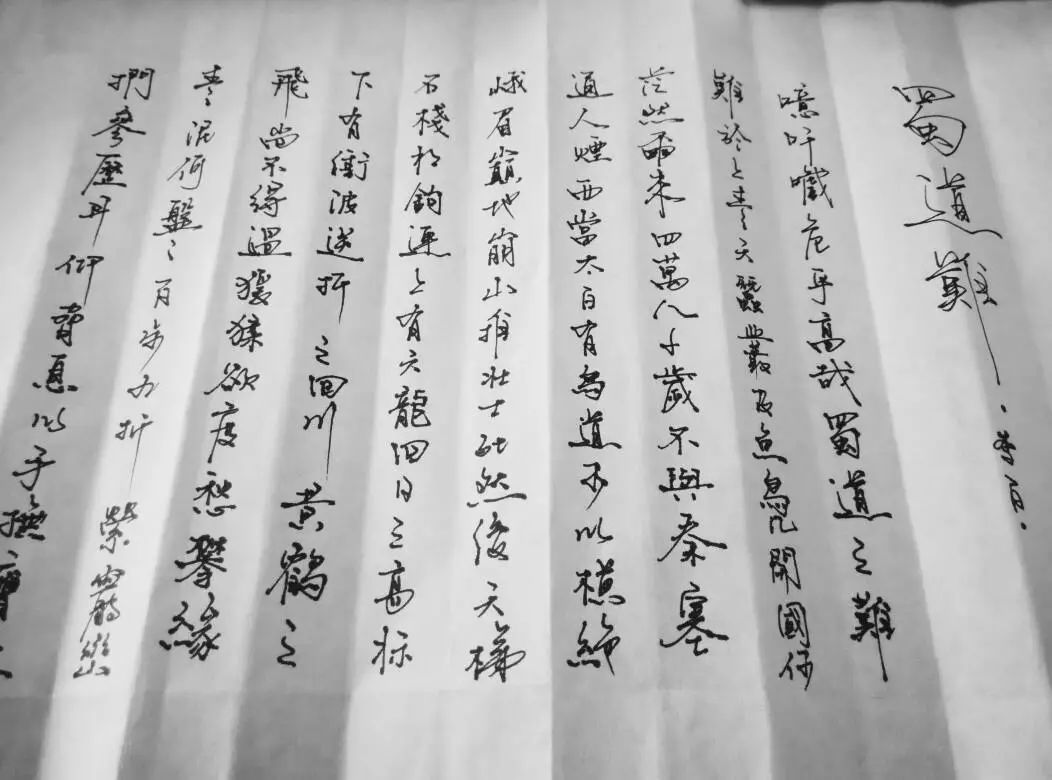 蜀道難
·李白·
噫吁嚱危乎高哉蜀道之難
難於上青天蠶叢及魚鳧開國何
茫然爾來四萬八千歲不與秦塞
通人煙西當太白有鳥道可以橫絕
峨眉巔地崩山摧壯士死然後天梯
石棧相鉤連上有六龍回日之高標
下有衝波逆折之回川黃鶴之
飛尚不得過猨猱欲度愁攀緣
青泥何盤〻百步九折縈巖巒
捫參歷井仰脅息以手撫膺